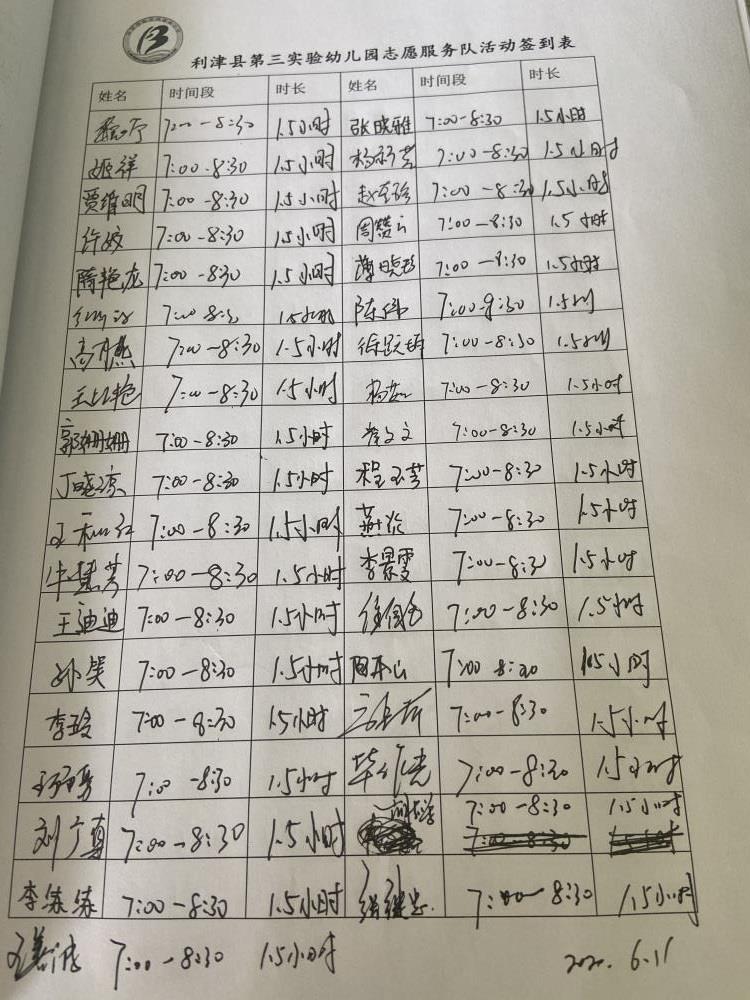 利津县第三实验幼儿园志愿服务队活动签到表
姓名 时间段 时长 姓名 时间段 时长
7:00-8:30 1.5小时 张晓雅 7:00-8:30 1.5小时
姬祥 7:00-8:30 1.5小时 7:00-8:30 1.5小时
贾维明 7:00-8:30 1.5小时 7:00-8:30 1.5小时
许姣 7:00-8:30 1.5小时 7:00-8:30 1.5小时
隋艳龙 7:00-8:30 1.5小时 薄晓彤 7:00-8:30 1.5小时
7:00-8:3 1.5小时 陈伟 7:00-8:30 1.5小时
高丹燕 7:00-8:30 1.5小时 7:00-8:30 1.5小时
7:00-8:30 1.5小时 7:00-8:30 1.5小时
郭姗姗 7:00-8:30 1.5小时 7:00-8:30 1.5小时
丁晓凉 7:00-8:30 1.5小时 程玉芳 7:00-8:30 1.5小时
7:00-8:30 1.5小时 燕 7:00-8:30 1.5小时
牛慧芳 7:00-8:30 1.5小时 李景雯 7:00-8:30 1.5小时
王迪迪 7:00-8:30 1.5小时 7:00-8:30 1.5小时
孙笑 7:00-8:30 1.5小时 7:00 8:30 1.5小时
李玲 7:00-8:30 1.5小时 7:00-8:30 1.5小时
7:00-8:30 1.5小时 7:00-8:30 1.5小时
刘广真 7:00-8:30 1.5小时 7:00-8:30 1.5小时
李练练 7:00-8:30 1.5小时 7:00-8:30 1.5小时
7:00-8:30 1.5小时 2020. 6.11